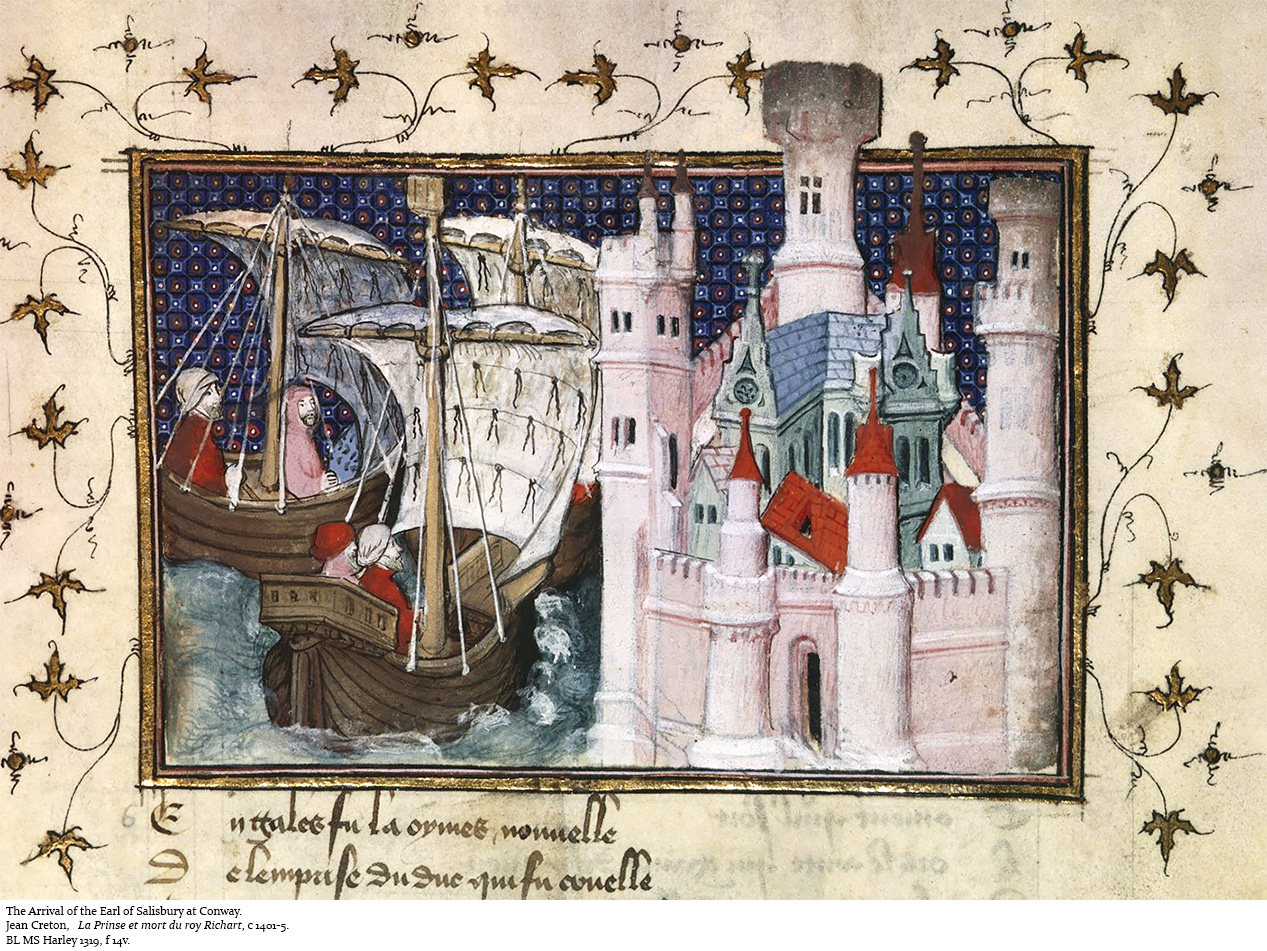 En gales fu la oymes nouuelle
De lemprise du duc qui fu cruelle
The Arrival of the Earl of Salisbury at Conway.
Jean Creton, La Prinse et mort du roy Richart, c 1401-5.
BL MS Harley 1319, f 14v.